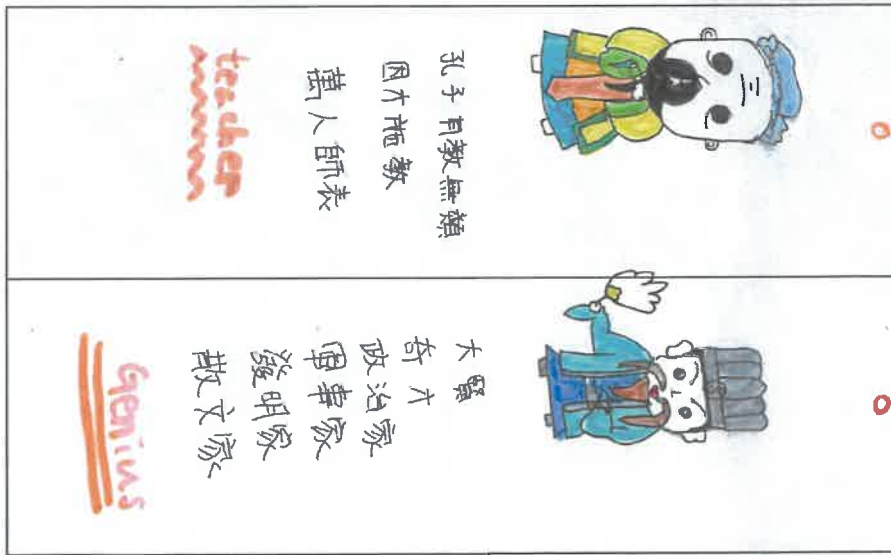 孔子有教無類
因才施教
萬人師表
teacher
大賢
奇才
政治家
軍事家
發明家
散文家
Genius